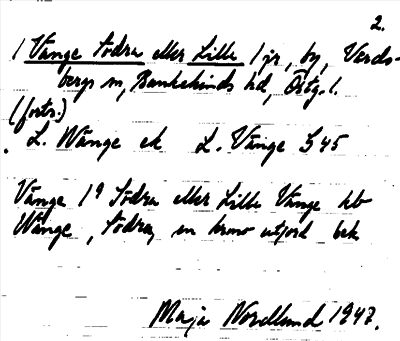 2.
/ Vänge Södra eller Lille / jr, by, Värds-
bergs sn, Bankekinds hd, Östg. l.
(forts.)
L. Wänge ek L. Vänge S45
Vänge 1º Södra eller Lille Vänge hb
Wänge, Södra, en krono utjord bek
Maja Nordlund 1947.